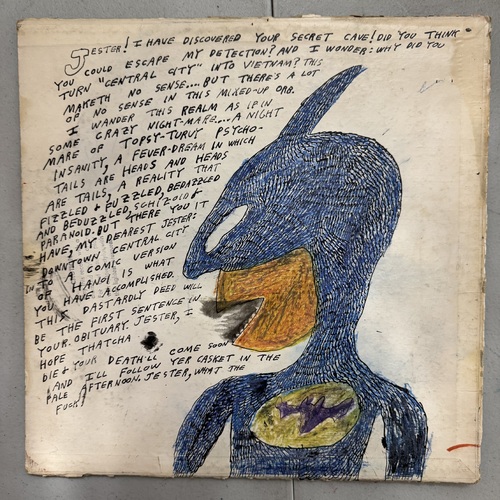 JESTER! I HAVE DISCOVERED YOUR SECRET CAVE! DID YOU THINK
YOU COULD ESCAPE MY DETECTION? AND I WONDER: WHY DID YOU
TURN "CENTRAL CITY" INTO VIETNAM? THIS
MAKETH NO SENSE... BUT THERE'S A LOT
OF NO SENSE IN THIS MIXED-UP ORB.
I WANDER THIS REALM AS IF IN
SOME CRAZY NIGHT-MARE... A NIGHT
MARE OF TOPSY-TURVY PSYCHO-
INSANITY, A FEVER-DREAM IN WHICH
TAILS ARE HEADS AND HEADS
ARE TAILS, A REALITY THAT
FIZZLED & PUZZLED, BEDAZZLED
AND BEDUZZLED, SCHIZOID &
PARANOID. BUT THERE YOU IT
HAVE, MY DEAREST JESTER:
DOWNTOWN CENTRAL CITY
INTO A COMIC VERSION
OF HANOI IS WHAT
YOU HAVE ACCOMPLISHED.
THIS DASTARDLY DEED WILL
BE THE FIRST SENTENCE IN
YOUR OBITUARY. JESTER, I
HOPE THATCHA
DIE & YOUR DEATH'LL COME SOON
AND I'LL FOLLOW YER CASKET IN THE
PALE AFTERNOON. JESTER, WHAT THE
FUCK!